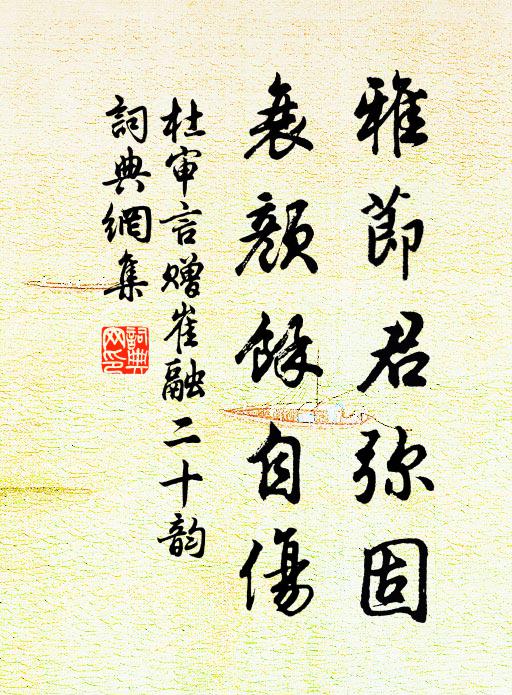 雅節君弥固
衰顏餘自傷
杜审言赠崔融二十韵
詞典網集
詞典網印